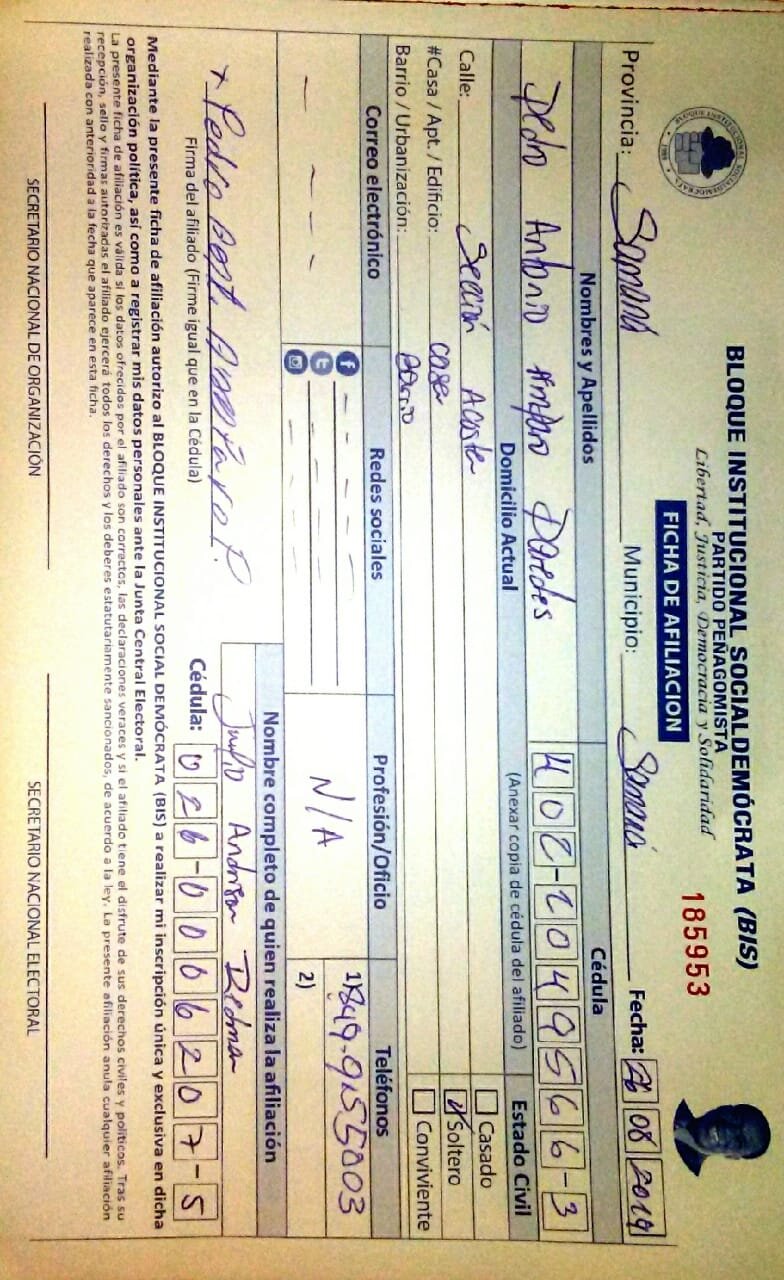 BLOQUE INSTITUCIONAL SOCIALDEMÓCRATA (BIS)
PARTIDO PEÑAGOMISTA
Libertad, Justicia, Democracia y Solidaridad
FICHA DE AFILIACION
185953
Provincia: Samaná Municipio: Samaná Fecha: 26 08 2019
Nombres y Apellidos Cédula
Pedro Antonio Amparo Paredes 402-2049566-3
Domicilio Actual (Anexar copia de cédula del afiliado) Estado Civil
Calle: Sección Acosta
#Casa / Apt. / Edificio: casa
Barrio / Urbanización: Barrio
Casado
Soltero
Conviviente
Correo electrónico Redes sociales Profesión/Oficio Teléfonos
N/A
1) 849-9155003
2)
Nombre completo de quien realiza la afiliación
Andrison Redman
Firma del afiliado (Firme igual que en la Cédula)
Cédula: 026-0006207-5
Mediante la presente ficha de afiliación autorizo al BLOQUE INSTITUCIONAL SOCIAL DEMÓCRATA (BIS) a realizar mi inscripción única y exclusiva en dicha
organización política, así como a registrar mis datos personales ante la Junta Central Electoral.
La presente ficha de afiliación es válida si los datos ofrecidos por el afiliado son correctos, las declaraciones veraces y si el afiliado tiene el disfrute de sus derechos civiles y políticos. Tras su
recepción, sello y firmas autorizadas el afiliado ejercerá todos los derechos y los deberes estatutariamente sancionados, de acuerdo a la ley. La presente afiliación anula cualquier afiliación
realizada con anterioridad a la fecha que aparece en esta ficha.
SECRETARIO NACIONAL DE ORGANIZACIÓN SECRETARIO NACIONAL ELECTORAL